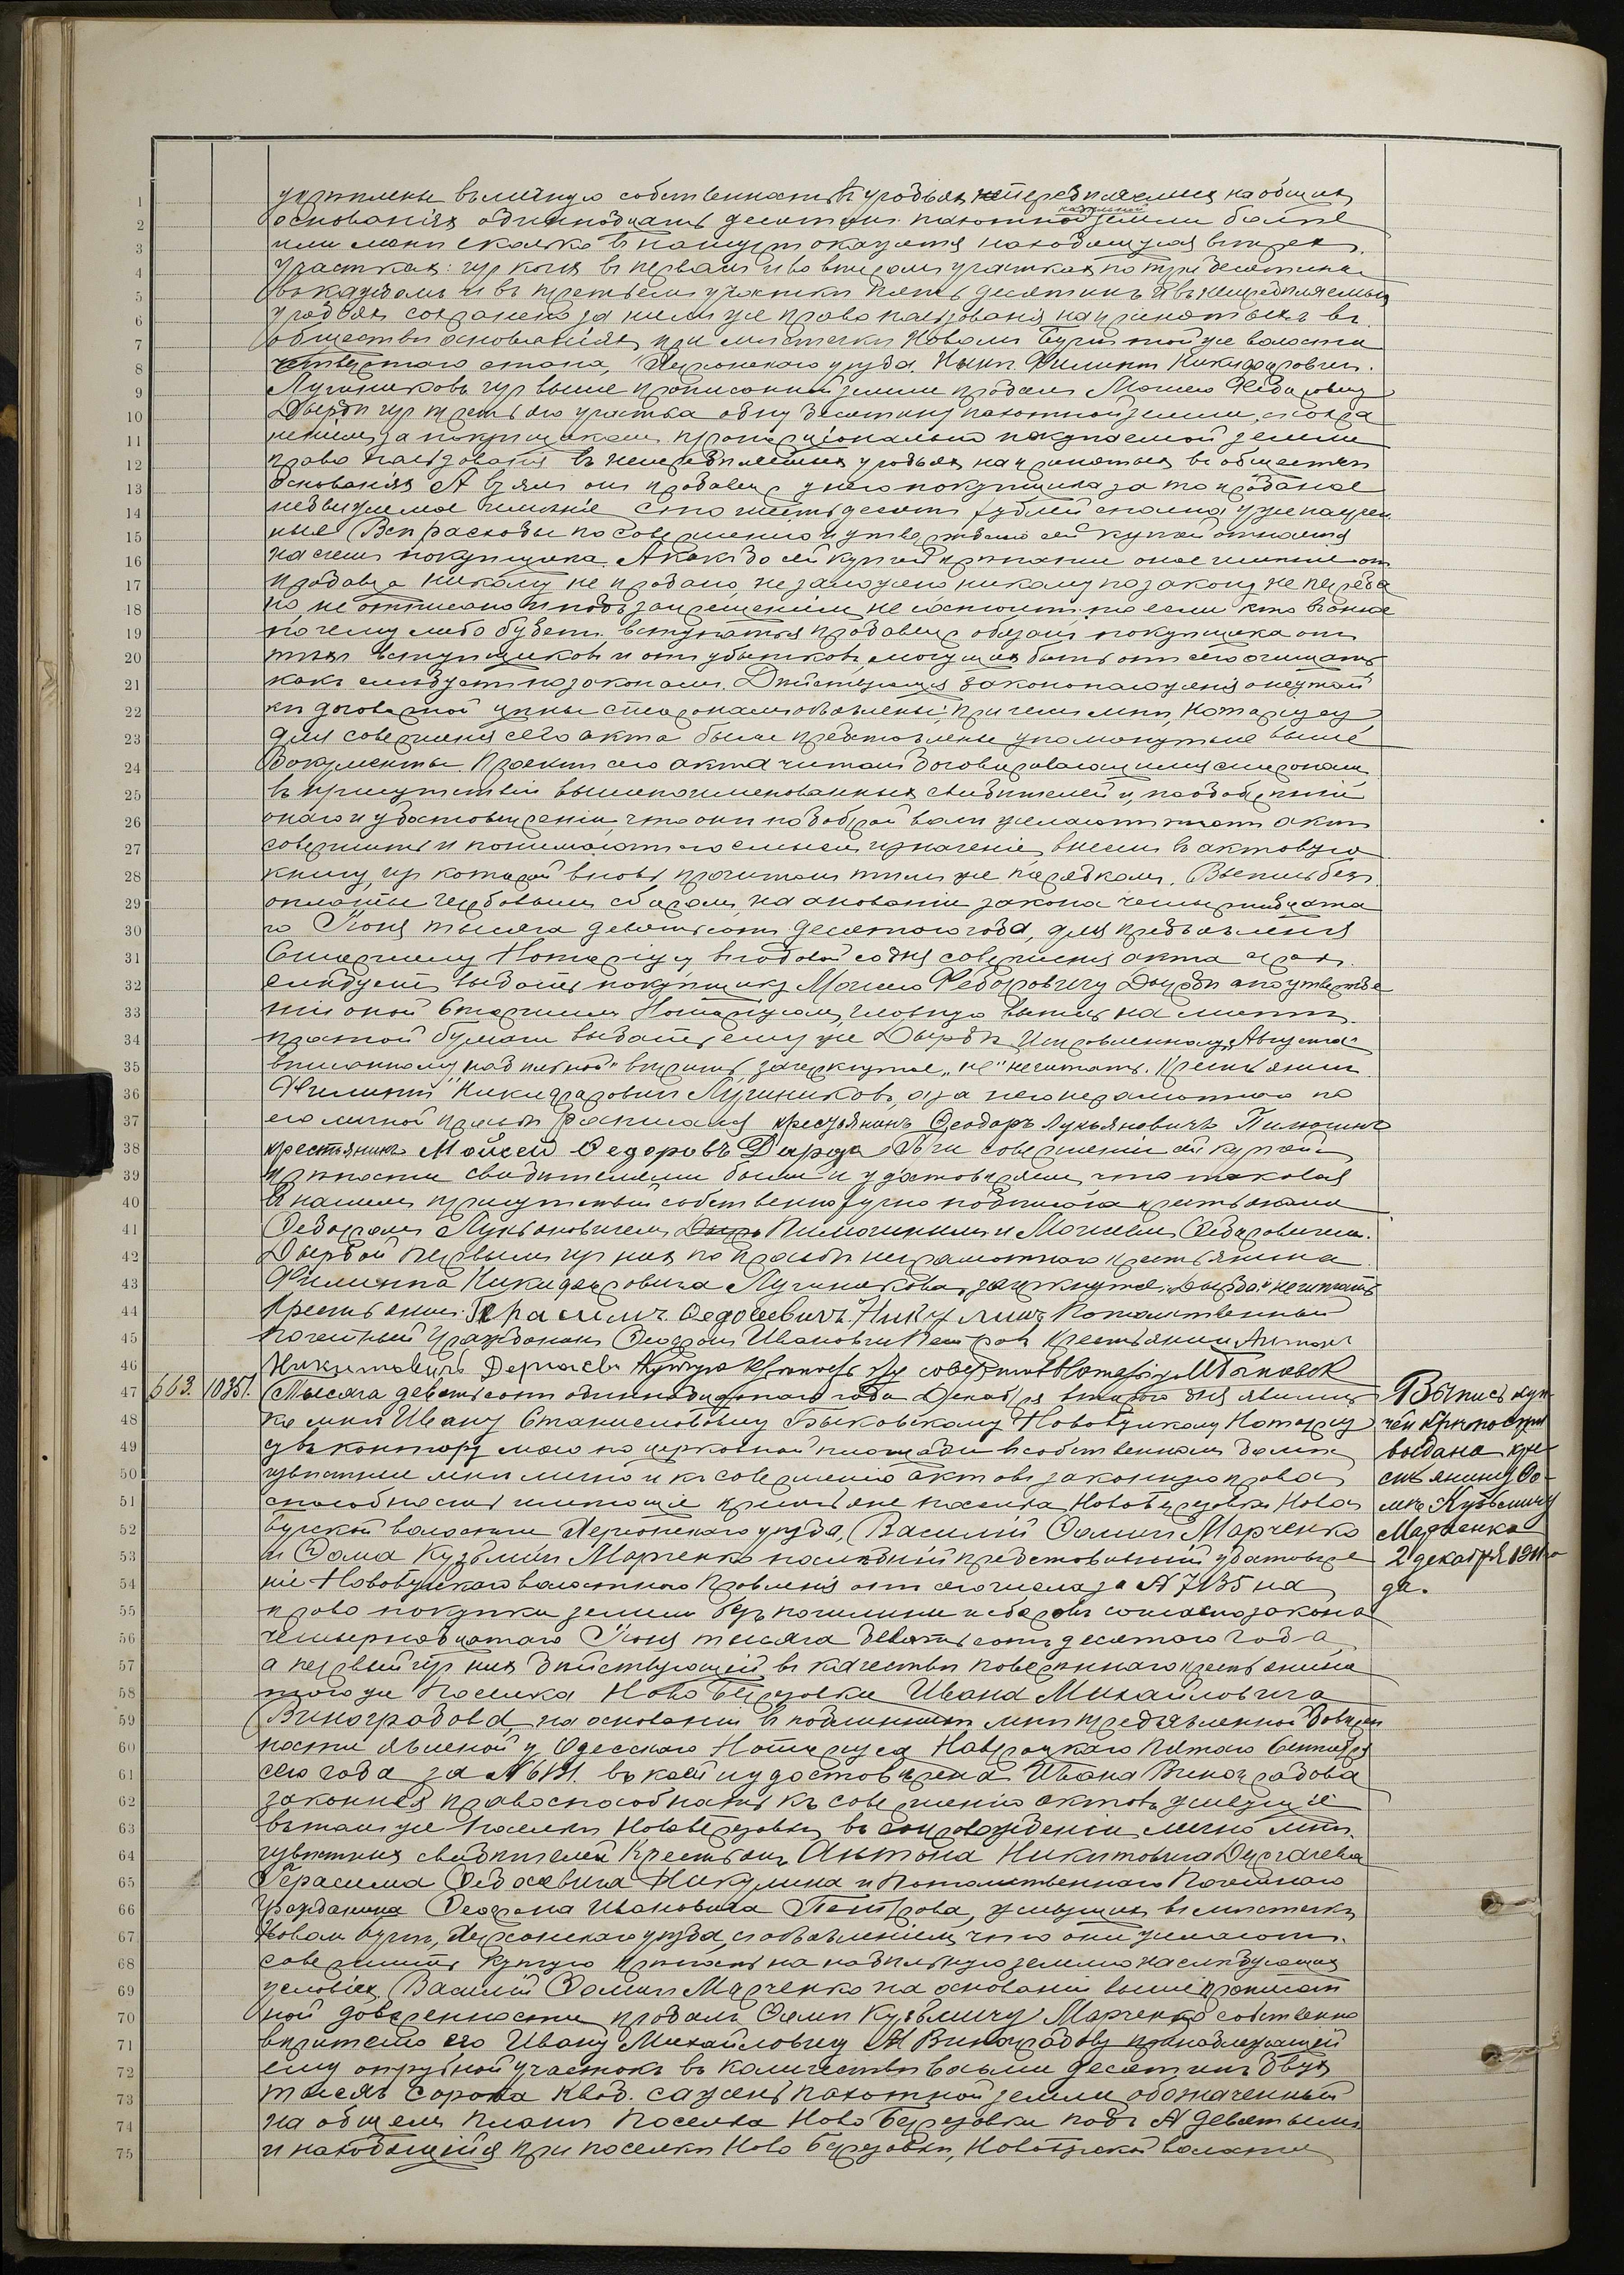 1 укреплены въ личную собственность въ угодьях не передѣляемых на общих
2 основаніях одиннадцать десятин пахотной надѣльной земли болѣе
3 или менѣе сколько в натурѣ окажется находящуюся в трех
4 участках: из коих в первом и во втором участках по три десятины
5 в каждом и в третьем участкѣ пять десятинъ и въ непередѣляемых
6 угодьях сохранено за ними же право пользованія на принятых в
7 обществѣ основаніях, при мѣстечкѣ Новом Бугѣ той же волости
8 четвертаго стана, Херсонскаго уѣзда. Нынѣ Филипп Никифорович
9 Лучниковъ из выше прописанной земли продал Моисею Федоровичу
10 Дырдѣ из третьяго участка одну десятину пахотной земли, с сохра
11 неніем за покупщиком пропорціонально покупаемой земли
12 право пользованія въ непередѣляемых угодьях на принятых в обществѣ
13 основаніях А взял он продавец у него покупщика за то проданое
14 недвижимое имѣніе сто шестьдесят рублей сполна уже получен
15 ные Всѣ расходы по совершенію и утвержденію сей купчей относятся
16 на счет покупщика. А как до сей купчей крѣпости оное имѣніе от
17 продавца никому не продано, не заложено никому по закону не переда
18 но, не отписано и под запрещеніем не состоит, то если кто в оное
19 по чему либо будет вступаться продавец обязан покупщика от
20 тѣх вступщиков и от убытков, могущих быть от сего очищать
21 как слѣдует по законам. Дѣйствующія законоположенія о неутай
22 кѣ договорной цѣны сторонам объявлены, при чем мнѣ, Нотаріусу
23 для совершенія сего акта были представлены упомянутые выше
24 документы. Проект сего акта читан договаривающимся сторонам
25 въ присутствіи вышепоименованных свидѣтелей и, по одобреніи
26 онаго и удостовѣреніи, что они по доброй воли желают этот акт
27 совершить и понимают его смысл и значеніе, внесен в актовую
28 книгу, из которой вновь прочитан тѣм же порядком. Выпись без
29 оплаты гербовым сбором, на основаніи закона четырнадцата
30 го Іюня тысяча девятьсот десятого года, для предъявленія
31 Старшему Нотаріусу в годовой со дня совершенія акта срок
32 слѣдует выдать покупщику Моисею Федоровичу Дырдѣ а по утвержде
33 ніи оной Старшим Нотаріусом, главную выпись на
34 простой бумагѣ выдать ему же Дырдѣ Исправленному „Августа"
35 вписанному „надѣльной" вѣрить, зачеркнутое „не" не читать. Крестьянин
36 Филипп Никифорович Лучниковъ, а за него неграмотнаго по
37 его личной просьбѣ росписался крестьянинъ Ѳеодоръ Лукьяновичъ Пимохинъ
38 крестьянинъ Мойсей Ѳедоровъ Дырда При совершеніи сей купчей
39 крѣпости свидѣтелями были и удостовѣряем, что таковая
40 в нашем присутствіи собственноручно подписана крестьянами
41 Ѳедором Лукьяновичем Дырд Пимохиным и Моисеем Ѳедоровичем
42 Дырдой первым из них по просьбѣ неграмотнаго крестьянина
43 Филиппа Никифоровича Лучникова, зачеркнутое „Дырдой" не читать
44 Крестьянин Герасимъ Ѳедосеевичъ Никулинъ Потомственный
45 почетный гражданин Ѳеодор Иванович Петров крестьянин Антон
46 Никитовичъ Дергачевъ Купчую крѣпость эту совершилъ Нотаріусъ И Быковск
47 663. 10351. Тысяча девятьсот одиннадцатаго года Декабря второго дня явились
48 ко мнѣ Ивану Станиславовичу Быковскому Новобугскому Нотаріусу
49 в контору мою на церковной площади в собственном домѣ
50 извѣстные мнѣ лично и к совершенію актовъ законную право
51 способность имѣющіе крестьяне поселка Новоберезовки Ново
52 бугской волости Херсонскаго уѣзда, Василій Ѳомич Марченко
53 и Ѳома Кузьмич Марченко послѣдній представившій удостовѣре
54 ніе Новобугскаго волостного Правленія от сего числа за № 7135 на
55 право покупки земли без пошлины и сборовъ согласно закона
56 четырнадцатаго Іюня тысяча девятьсот десятаго года
57 а первый из них дѣйствующій в качествѣ повѣреннаго крестьянина
58 того же поселка Ново Березовки Ивана Михайловича
59 Виноградова, на основаніи в подлинникѣ мнѣ предъявленной довѣрен
60 ности явленной у Одесскаго Нотаріуса Навроцкаго пятаго Сентября
61 сего года за № в коей и удостовѣрена Ивана Виноградова
62 законная правоспособность къ совершенію актовъ, живущіе
63 в том же поселкѣ Новоберезовкѣ в сопровожденіи лично мнѣ
64 извѣстных свидѣтелей Крестьян Антона Никитовича Дергачева
65 Герасима Ѳедосеевича Никулина и Потомственнаго Почетнаго
66 гражданина Ѳеодора Ивановича Петрова, живущих в мѣстечкѣ
67 Новом Бугѣ, Херсонскаго уѣзда, с объявленіем, что они желают
68 совершить купчую крѣпость на надѣльную землю на слѣдующих
69 условіях Василій Ѳомич Марченко на основаніи вышепрописан
70 ной доверенности продалъ Ѳомѣ Кузьмичу Марченко собственно
71 вѣрителю его Ивану Михайловичу Виноградову принадлежащій
72 ему отрубной участокъ въ количествѣ восьми десятинъ двух
73 тысячъ сорока квад. сажень пахотной земли обозначенный
74 на общем планѣ поселка Ново Березовки подъ № девятым
75 и находящійся при поселкѣ Ново Березовкѣ, Новобугской волости
Выпись куп
чей крѣпости
выдана кре
стьянину Ѳо
мѣ Кузьмичу
Марченко
2 декабря 1911 го
да.